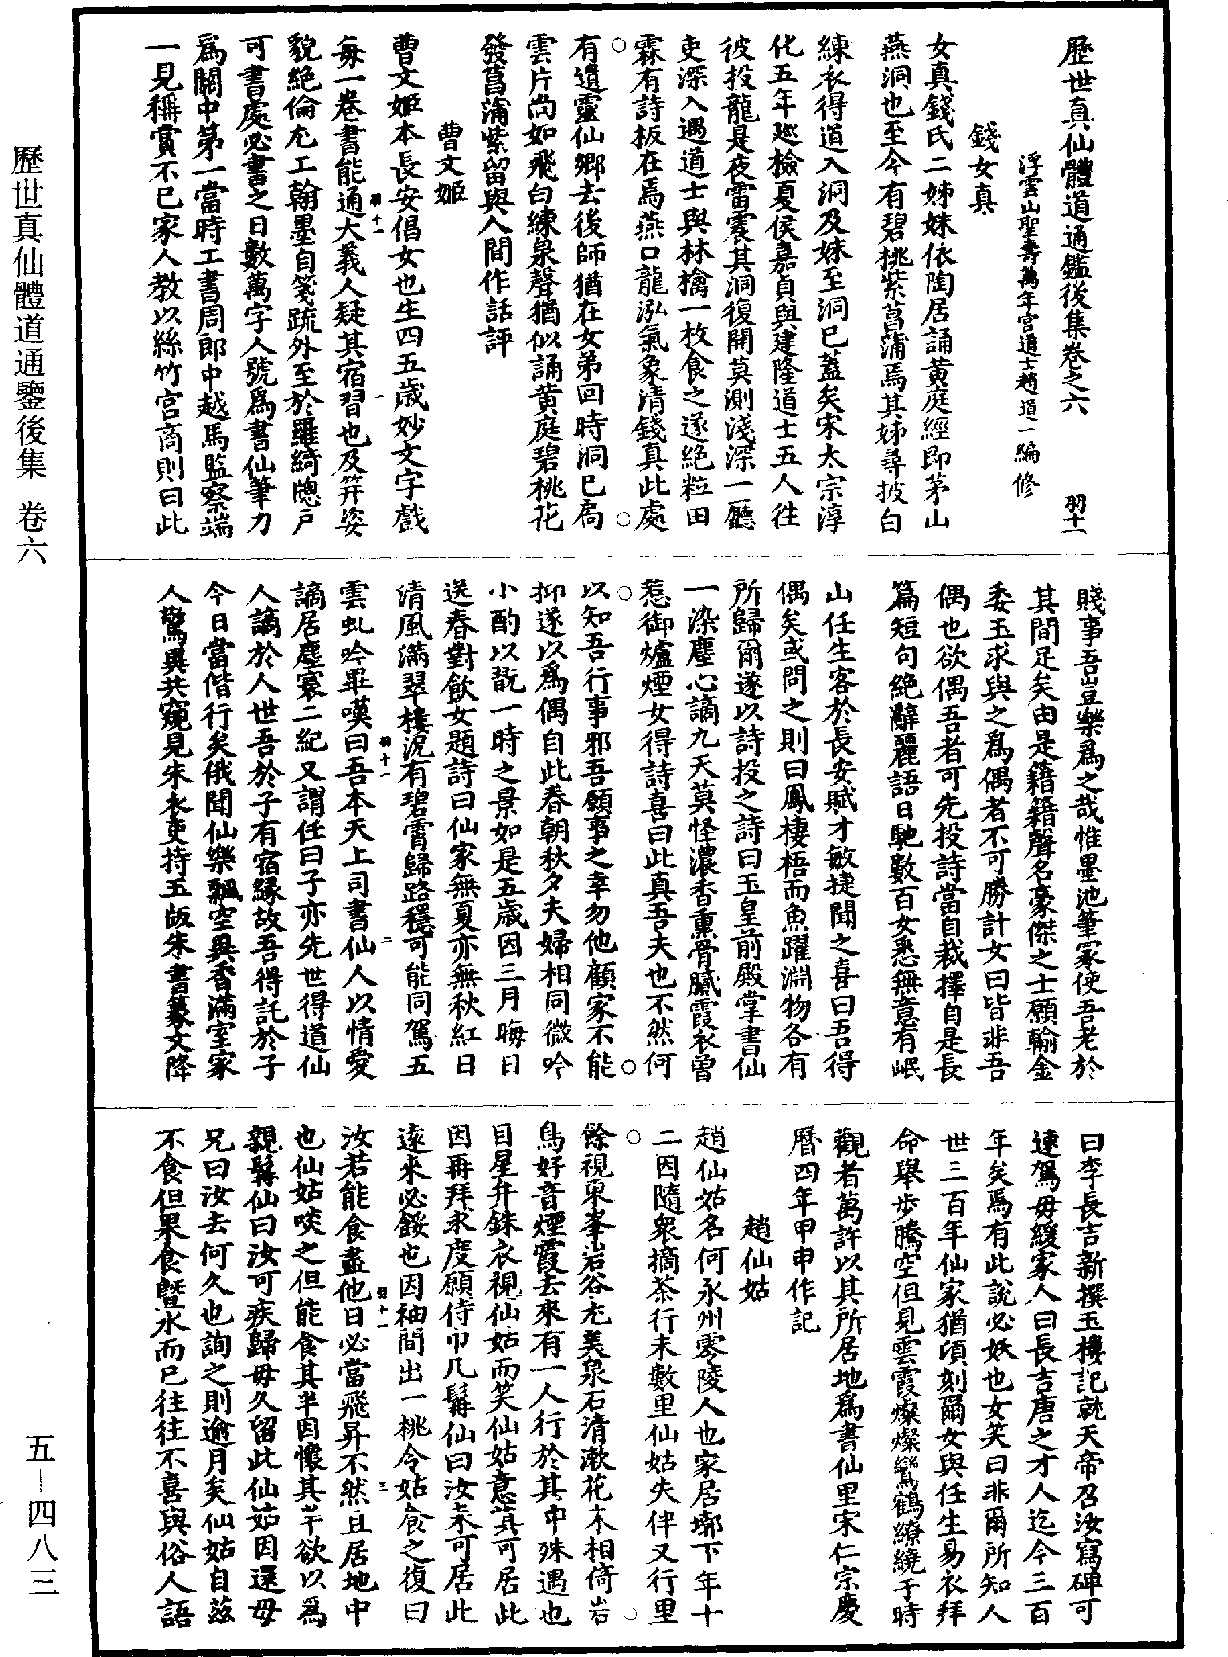 歷世真仙體道通鑑後集卷之六　羽十一
浮雲山聖壽萬年宮道士趙道一編修
錢女真
女真錢氏二姊妹依陶居誦黃庭經即茅山
燕洞也至今有碧桃紫菖蒲焉其姊尋披白
練衣得道入洞及妹至洞已蓋矣宋太宗淳
化五年巡檢夏侯嘉貞與建隆道士五人往
彼投龍是夜雷震其洞復開莫測淺深一廳
吏深入遇道士與林擒一枚食之遂絕粒田
霖有詩扳在焉燕口龍泓氣象清錢真此處
有遺靈仙鄉去後師猶在女弟回時洞已扃
雲片尚如飛白練泉聲猶似誦黃庭碧桃花
發菖蒲紫留與人間作話評
曹文姬
曹文姬本長安倡女也生四五歲妙文字戲
每一卷書能通大義人疑其宿習也及笄姿
貌絕倫尤工翰墨自箋疏外至於羅綺牕戶
可書處必書之日數萬字人號為書仙筆力
為關中第一當時工書周郎中越馬監察端
一見稱賞不已家人教以絲竹宮商則曰此
賤事吾豈樂為之哉惟墨池筆冢使吾老於
其間足矣由是籍籍聲名豪傑之士願輸金
委玉求與之為偶者不可勝計女曰皆非吾
偶也欲偶吾者可先投詩當自裁擇自是長
篇短句絕辭麗語日馳數百女悉無意有岷
山任生客於長安賦才敏捷聞之喜曰吾得
偶矣或問之則曰鳳棲梧而魚躍淵物各有
所歸爾遂以詩投之詩曰玉皇前殿掌書仙
一染塵心謫九天莫怪濃香熏骨膩霞衣曾
惹御爐煙女得詩喜曰此真吾夫也不然何
以知吾行事邪吾願事之幸勿他顧家不能
抑遂以為偶自此春朝秋夕夫婦相同微吟
小酌以翫一時之景如是五歲因三月晦日
送春對飲女題詩曰仙家無夏亦無秋紅日
清風滿翠樓況有碧霄歸路穩可能同駕五
雲虬吟畢嘆曰吾本天上司書仙人以情愛
謫居塵寰二紀又謂任曰子亦先世得道仙
人謫於人世吾於子有宿緣故吾得託於子
今日當偕行矣俄聞仙樂飄空異香滿室家
人驚異共窺見朱衣吏持玉版朱書篆文降
曰李長吉新撰玉樓記就天帝召汝寫碑可
速駕毋緩家人曰長吉唐之才人迄今三百
年矣焉有此說必妖也女笑曰非爾所知人
世三百年仙家猶頃刻爾女與任生易衣拜
命舉步騰空但見雲霞爍爍鸞鶴繚繞于時
觀者萬許以其所居地為書仙里宋仁宗慶
曆四年甲申作記
趙仙姑
趙仙姑名何永州零陵人也家居郭下年十
二因隨眾摘茶行未數里仙姑失伴又行里
餘視眾峯岩谷尤美泉石清漱花木相倚岩
鳥好音煙霞去來有一人行於其中殊遇也
目星弁銖衣視仙姑而笑仙姑意其可居此
因再拜求度願侍巾几髯仙曰汝未可居此
遠來必餒也因袖間出一桃令姑食之復曰
汝若能食盡他日必當飛昇不然且居地中
也仙姑啖之但能食其半因懷其半欲以為
親髯仙曰汝可疾歸毋久留此仙姑因還母
兄曰汝去何久也詢之則逾月矣仙姑自茲
不食但果食暨水而已往往不喜與俗人語
歷世真仙體道通鑒後集　卷六
五—四八三